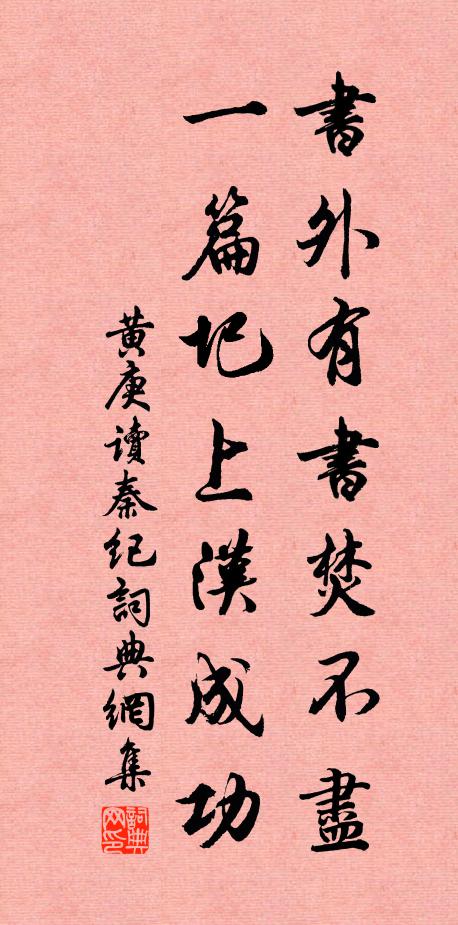 書外有書焚不盡
一篇圯上漢成功
黃庚讀秦紀詞典網集
詞典网印